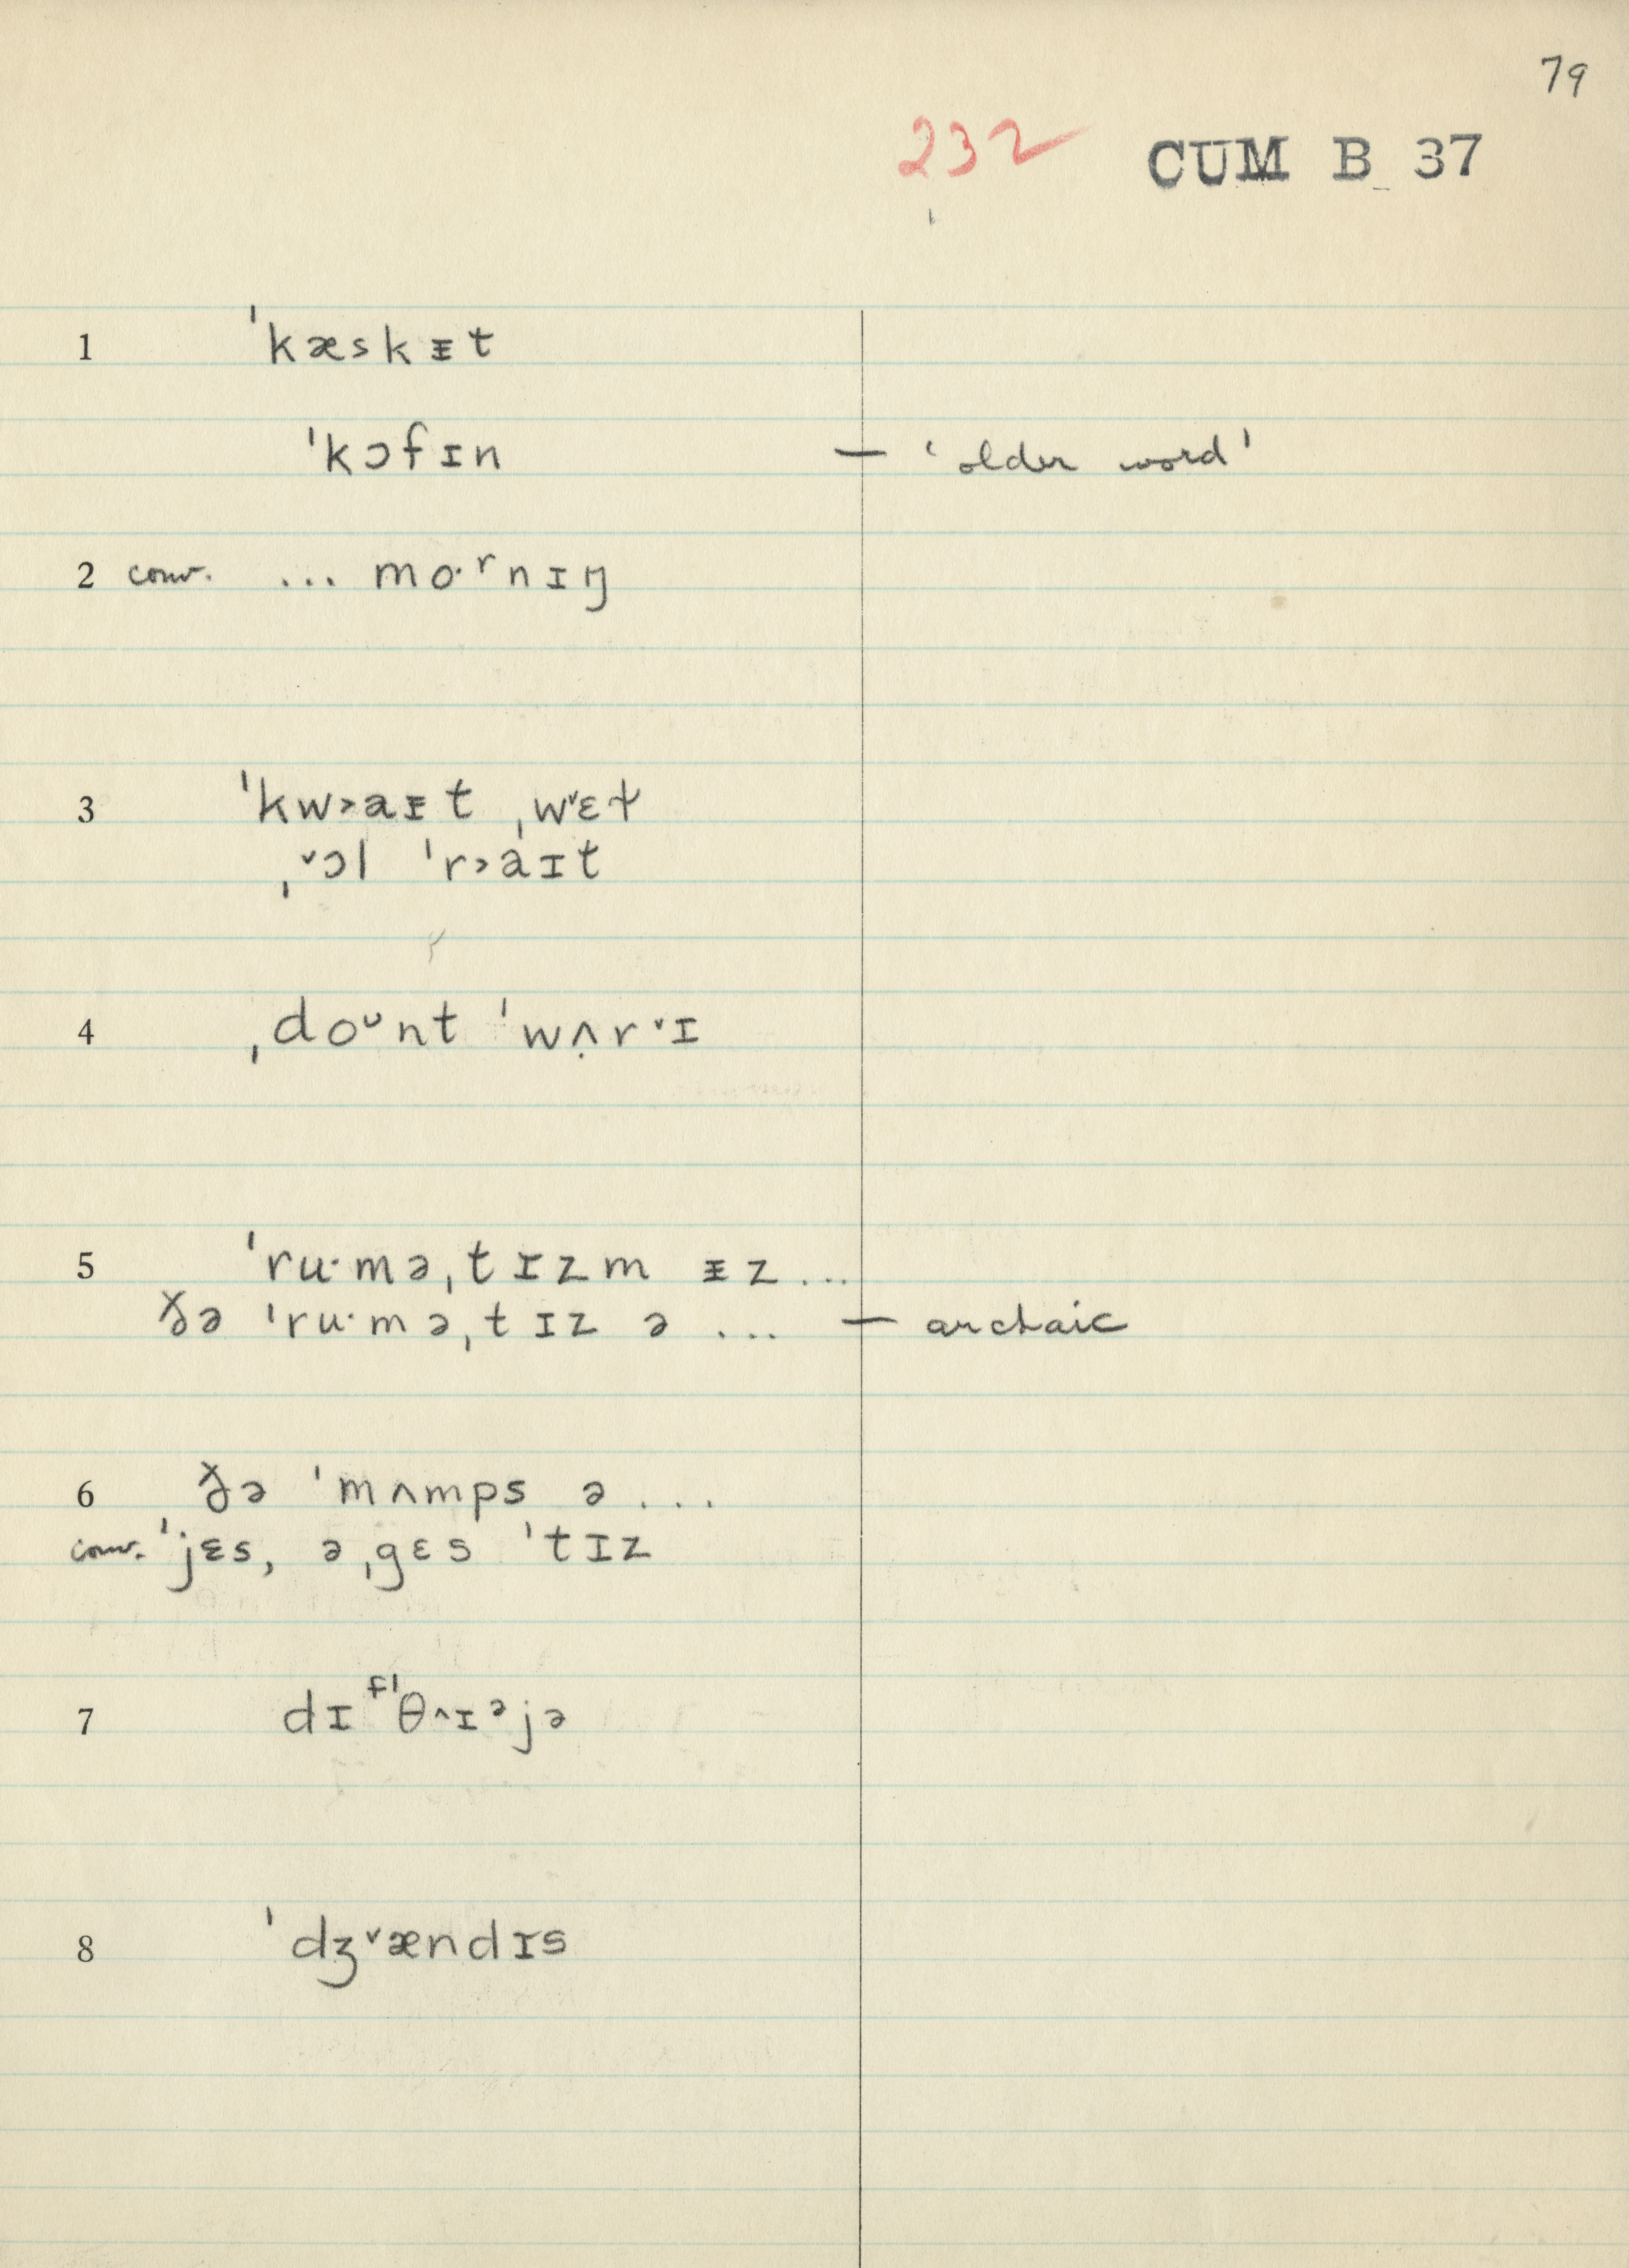 79
232 CUM B 37
1 ˈkæskᵻt
ˈkɔfɪn — ‘older word’
2 conv. ... moˑʳnɪŋ
3 ˈkw˃aᵻt ˌw˅ɛt̬
ˌ˅ɔl ˈr˃aɪt
4 ˌdoᶷnt ˈwʌ̣r˅ɪ
5 ˈruˑməˌtɪzm ᵻz...
ðə ˈruˑməˌtɪz ə ... — archaic
6 ðə ˈmʌmps ə...
conv. ˈjɛs, əˌgɛs ˈtɪz
7 dɪᶠˈθ˄ɪᵊjə
8 ˈdʒ˅ændɪs